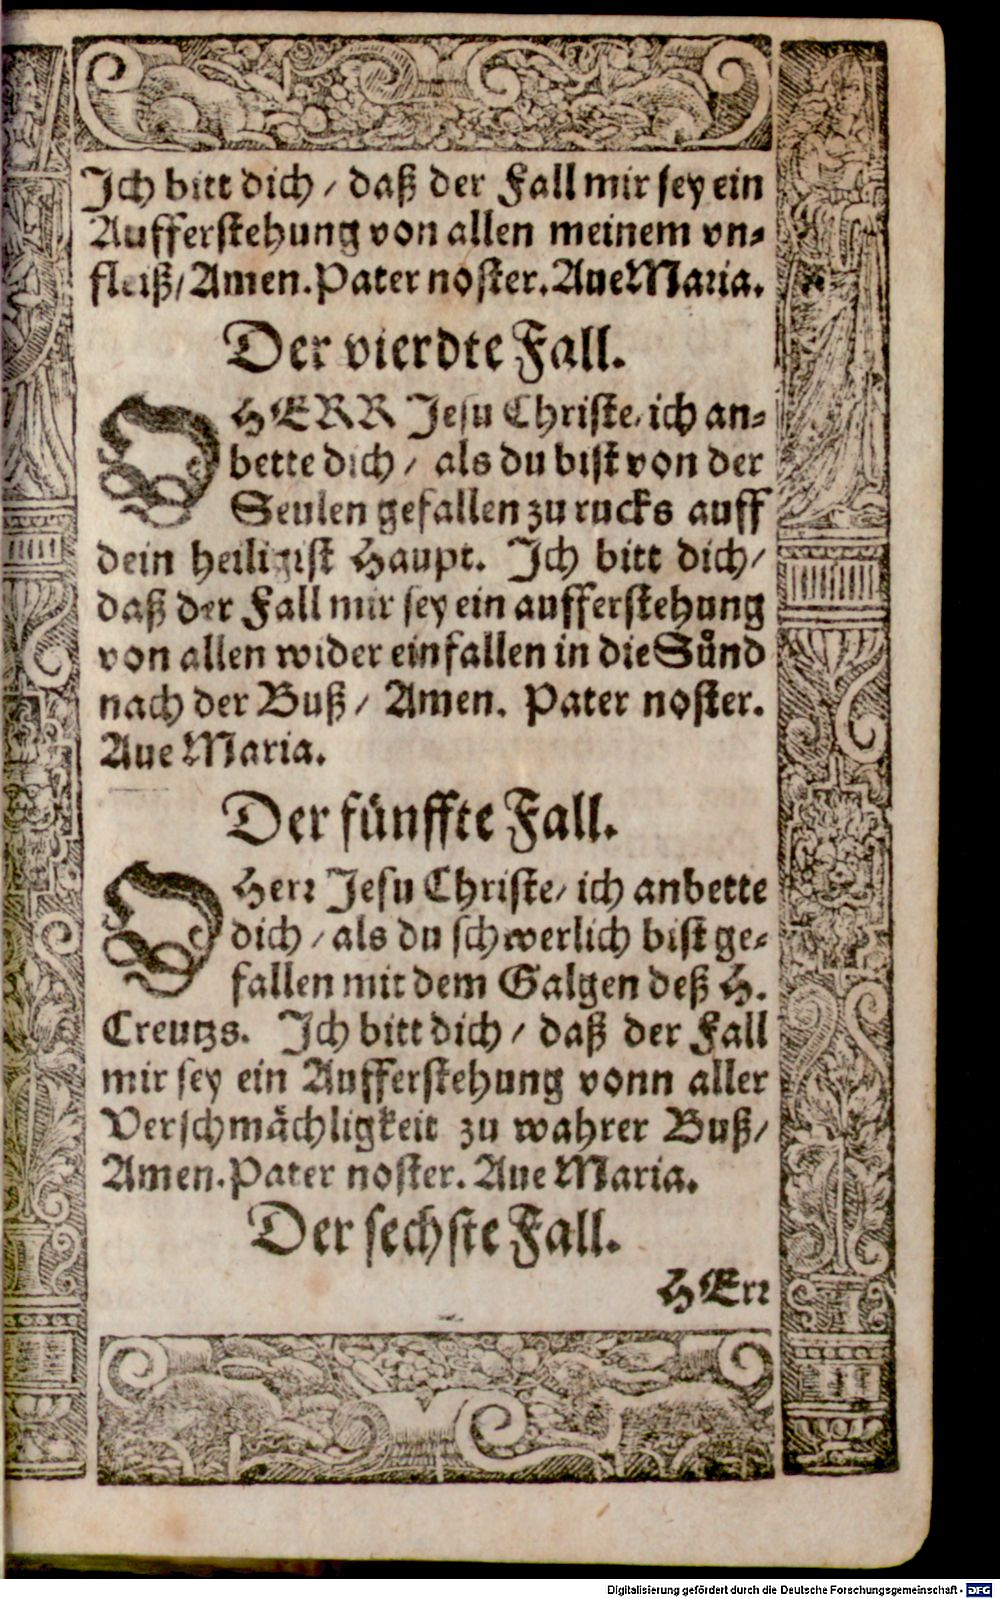 Ich bitt dich / daß der Fall mir sey ein
Aufferstehung von allen meinem vn-
fleiß / Amen. Pater noster. Aue Maria.
Der vierdte Fall.
O HERR Jesu Christe / ich an-
bette dich / als du bist von der
Seulen gefallen zu rucks auff
dein heiligist Haupt. Ich bitt dich /
daß der Fall mir sey ein aufferstehung
von allen wider einfallen in die Sůnd
nach der Buß / Amen. Pater noster.
Aue Maria.
Der fünffte Fall.
O Herr Jesu Christe / ich anbette
dich / als du schwerlich bist ge-
fallen mit dem Galgen deß H.
Creutzs. Ich bitt dich / daß der Fall
mir sey ein Aufferstehung vonn aller
Verschmächligkeit zu wahrer Buß /
Amen. Pater noster. Aue Maria.
Der sechste Fall.
HErr
Digitalisierung gefördert durch die Deutsche Forschungsgemeinschaft - DFG